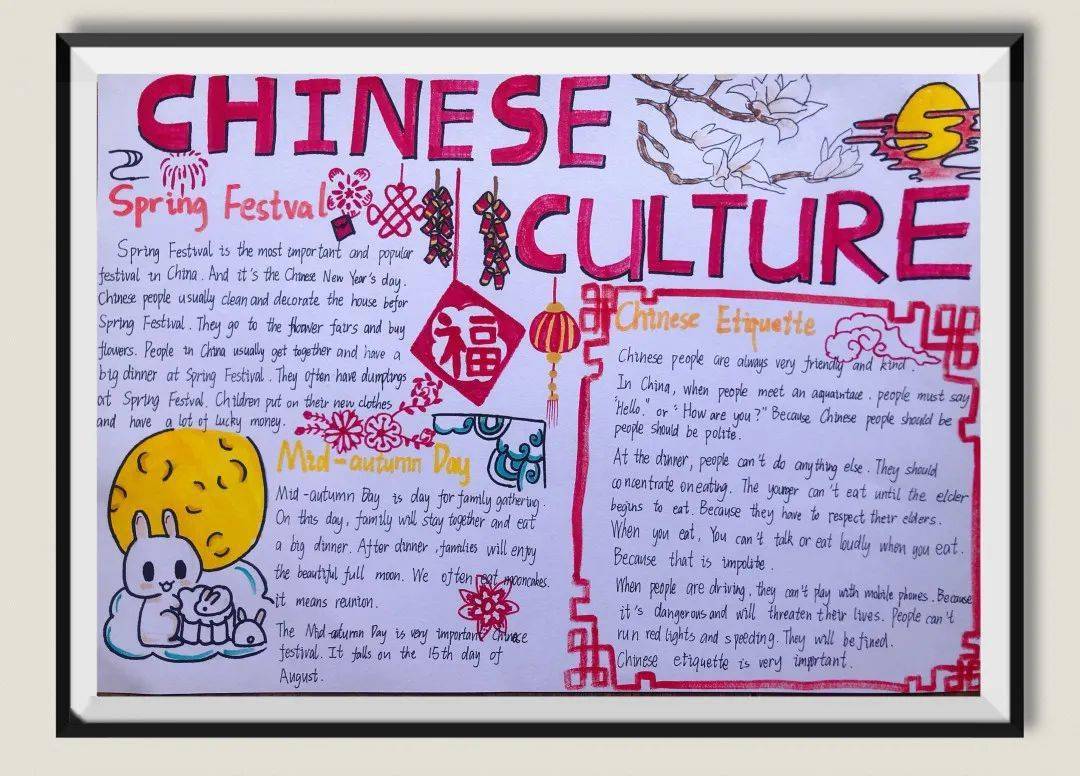 CHINESE
CULTURE
Spring Festval
Spring Festival is the most important and popular
festival in China. And it's the Chinese New Year's day.
Chinese people usually clean and decorate the house befor
Spring Festival. They go to the flower fairs and buy
flowers. People in China usually get together and have a
big dinner at Spring Festival. They often have dumplings
at Spring Festval. Children put on their new clothes
and have a lot of lucky money.
福
Mid-autumn Day
Mid-autumn Day is day for family gathering.
On this day, family will stay together and eat
a big dinner. After dinner, families will enjoy
the beautiful full moon. We often eat mooncakes.
it means reunion.
The Mid-autumn Day is very important Chinese
festival. It falls on the 15th day of
August.
Chinese Etiquette
Chinese people are always very friendly and kind.
In China, when people meet an aquaintace. people must say
"Hello." or "How are you?" Because Chinese people should be
people should be polite.
At the dinner, people can't do anything else. They should
concentrate on eating. The younger can't eat until the elder
begins to eat. Because they have to respect their elders.
When you eat, You can't talk or eat loudly when you eat.
Because that is impolite.
When people are driving, they can't play with mobile phones. Because
it's dangerous and will threaten their lives. People can't
run red lights and speeding. They will be fined.
Chinese etiquette is very important.